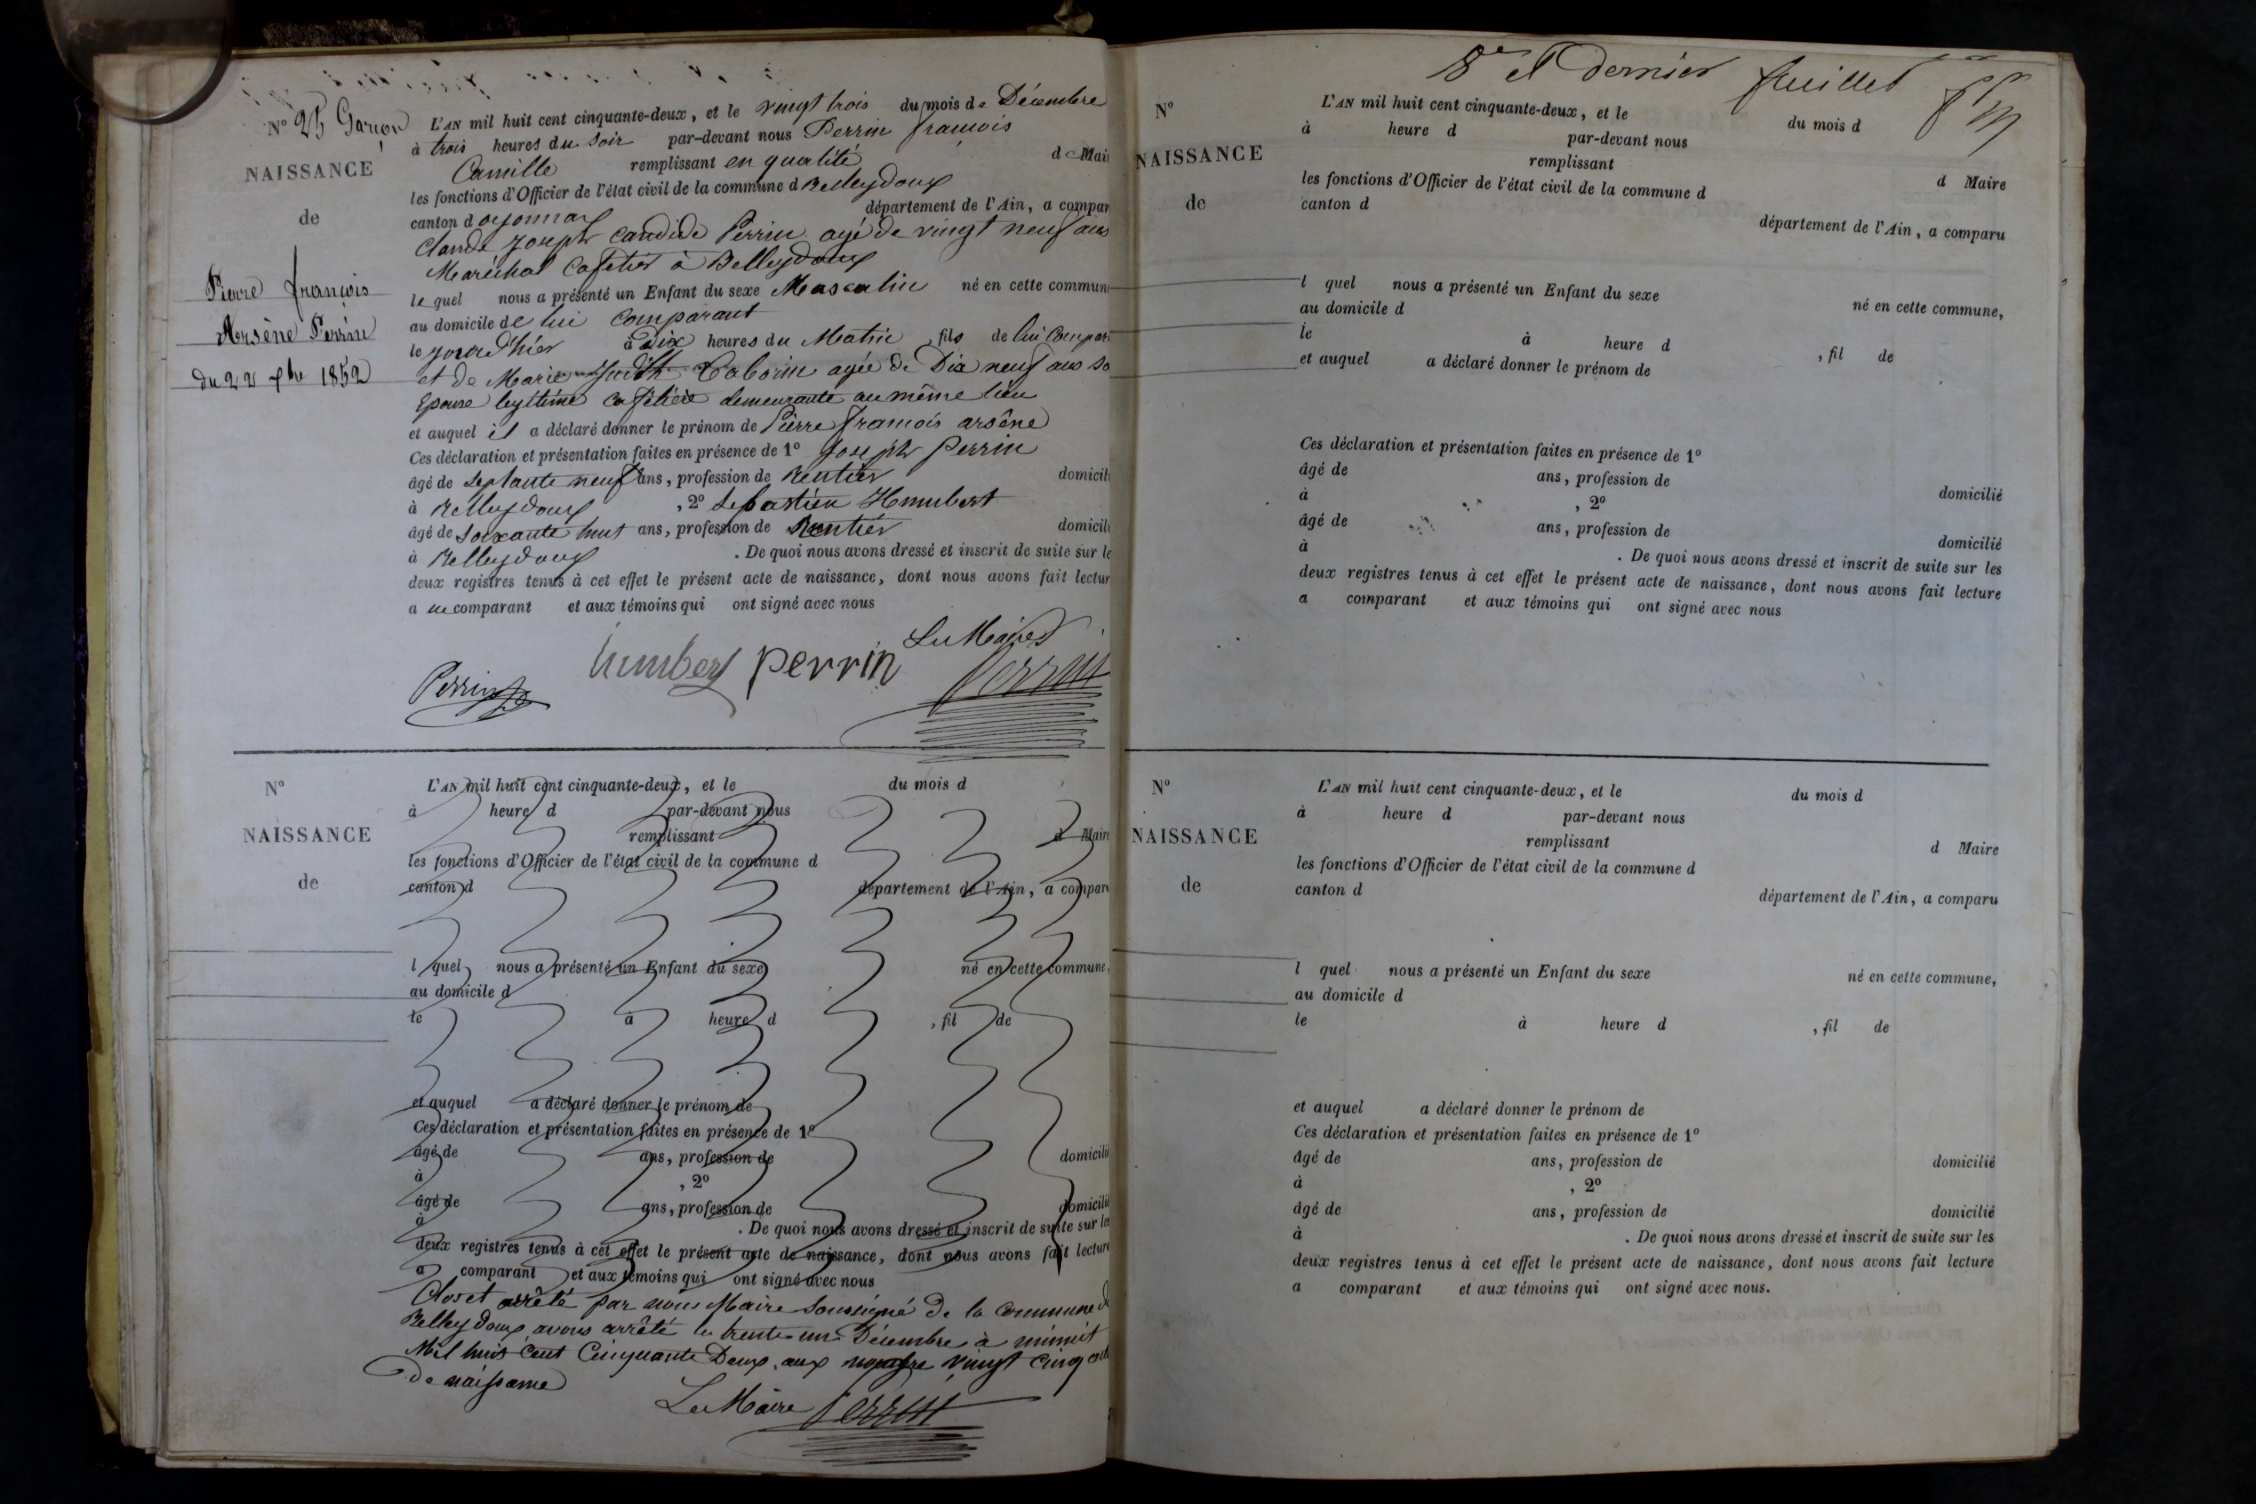 N° 25 Garçon
NAISSANCE
de
Pierre françois
Arsène Perrin
du 22 xbre 1852
L'AN mil huit cent cinquante-deux, et le vingt trois du mois de Décembre
à trois heures du Soir par-devant nous Perrin françois
Camille remplissant en qualité de Mair
les fonctions d'Officier de l'état civil de la commune d Belleydoux
canton d oyonnax département de l'Ain, a compar
Claude Joseph candide Perrin agé de vingt neuf ans
Maréchal Cafetier à Belleydoux
le quel nous a présenté un Enfant du sexe Masculin né en cette commune
au domicile de lui comparant
le jour d'hier à Dix heures du Matin, fils de lui Compar
et de Marie Judith agée de Dix neuf ans so
Epouse legitime cafetière demeurante au même lieu
et auquel il a déclaré donner le prénom de Pierre françois arsène
Ces déclaration et présentation faites en présence de 1° Joseph Perrin
âgé de Septante neuf ans, profession de Rentier domicili
à Belleydoux, 2° Sebastien Humbert
âgé de Soixante huit ans, profession de Rentier domicili
à Belleydoux. De quoi nous avons dressé et inscrit de suite sur le
deux registres tenus à cet effet le présent acte de naissance, dont nous avons fait lectur
a u comparant et aux témoins qui ont signé avec nous
Le Maire
Perrin humbert perrin Perrin
N°
NAISSANCE
de
L'AN mil huit cent cinquante-deux, et le du mois d
à heure d par-devant nous
remplissant d Maire
les fonctions d'Officier de l'état civil de la commune d
canton d département de l'Ain, a compar
l quel nous a présenté un Enfant du sexe né en cette commune,
au domicile d
le à heure d , fil de
et auquel a déclaré donner le prénom de
Ces déclaration et présentation faites en présence de 1°
âgé de ans, profession de domicilié
à , 2°
âgé de ans, profession de domicilié
à . De quoi nous avons dressé et inscrit de suite sur les
deux registres tenus à cet effet le présent acte de naissance, dont nous avons fait lecture
a comparant et aux témoins qui ont signé avec nous
Clos et arrêté par nous Maire Soussigné de la Commune d
Belleydoux avons arrêté le trente un Décembre à minuit
Mil huit cent Cinquante Deux, aux nombre vingt cinq act
de naissance
Le Maire Perrin
8e et dernier feuillet
N°
NAISSANCE
de
L'AN mil huit cent cinquante-deux, et le du mois d
à heure d par-devant nous
remplissant d Maire
les fonctions d'Officier de l'état civil de la commune d
canton d département de l'Ain, a comparu
l quel nous a présenté un Enfant du sexe né en cette commune,
au domicile d
le à heure d , fil de
et auquel a déclaré donner le prénom de
Ces déclaration et présentation faites en présence de 1°
âgé de ans, profession de domicilié
à , 2°
âgé de ans, profession de domicilié
à . De quoi nous avons dressé et inscrit de suite sur les
deux registres tenus à cet effet le présent acte de naissance, dont nous avons fait lecture
a comparant et aux témoins qui ont signé avec nous
N°
NAISSANCE
de
L'AN mil huit cent cinquante-deux, et le du mois d
à heure d par-devant nous
remplissant d Maire
les fonctions d'Officier de l'état civil de la commune d
canton d département de l'Ain, a comparu
l quel nous a présenté un Enfant du sexe né en cette commune,
au domicile d
le à heure d , fil de
et auquel a déclaré donner le prénom de
Ces déclaration et présentation faites en présence de 1°
âgé de ans, profession de domicilié
à , 2°
âgé de ans, profession de domicilié
à . De quoi nous avons dressé et inscrit de suite sur les
deux registres tenus à cet effet le présent acte de naissance, dont nous avons fait lecture
a comparant et aux témoins qui ont signé avec nous.